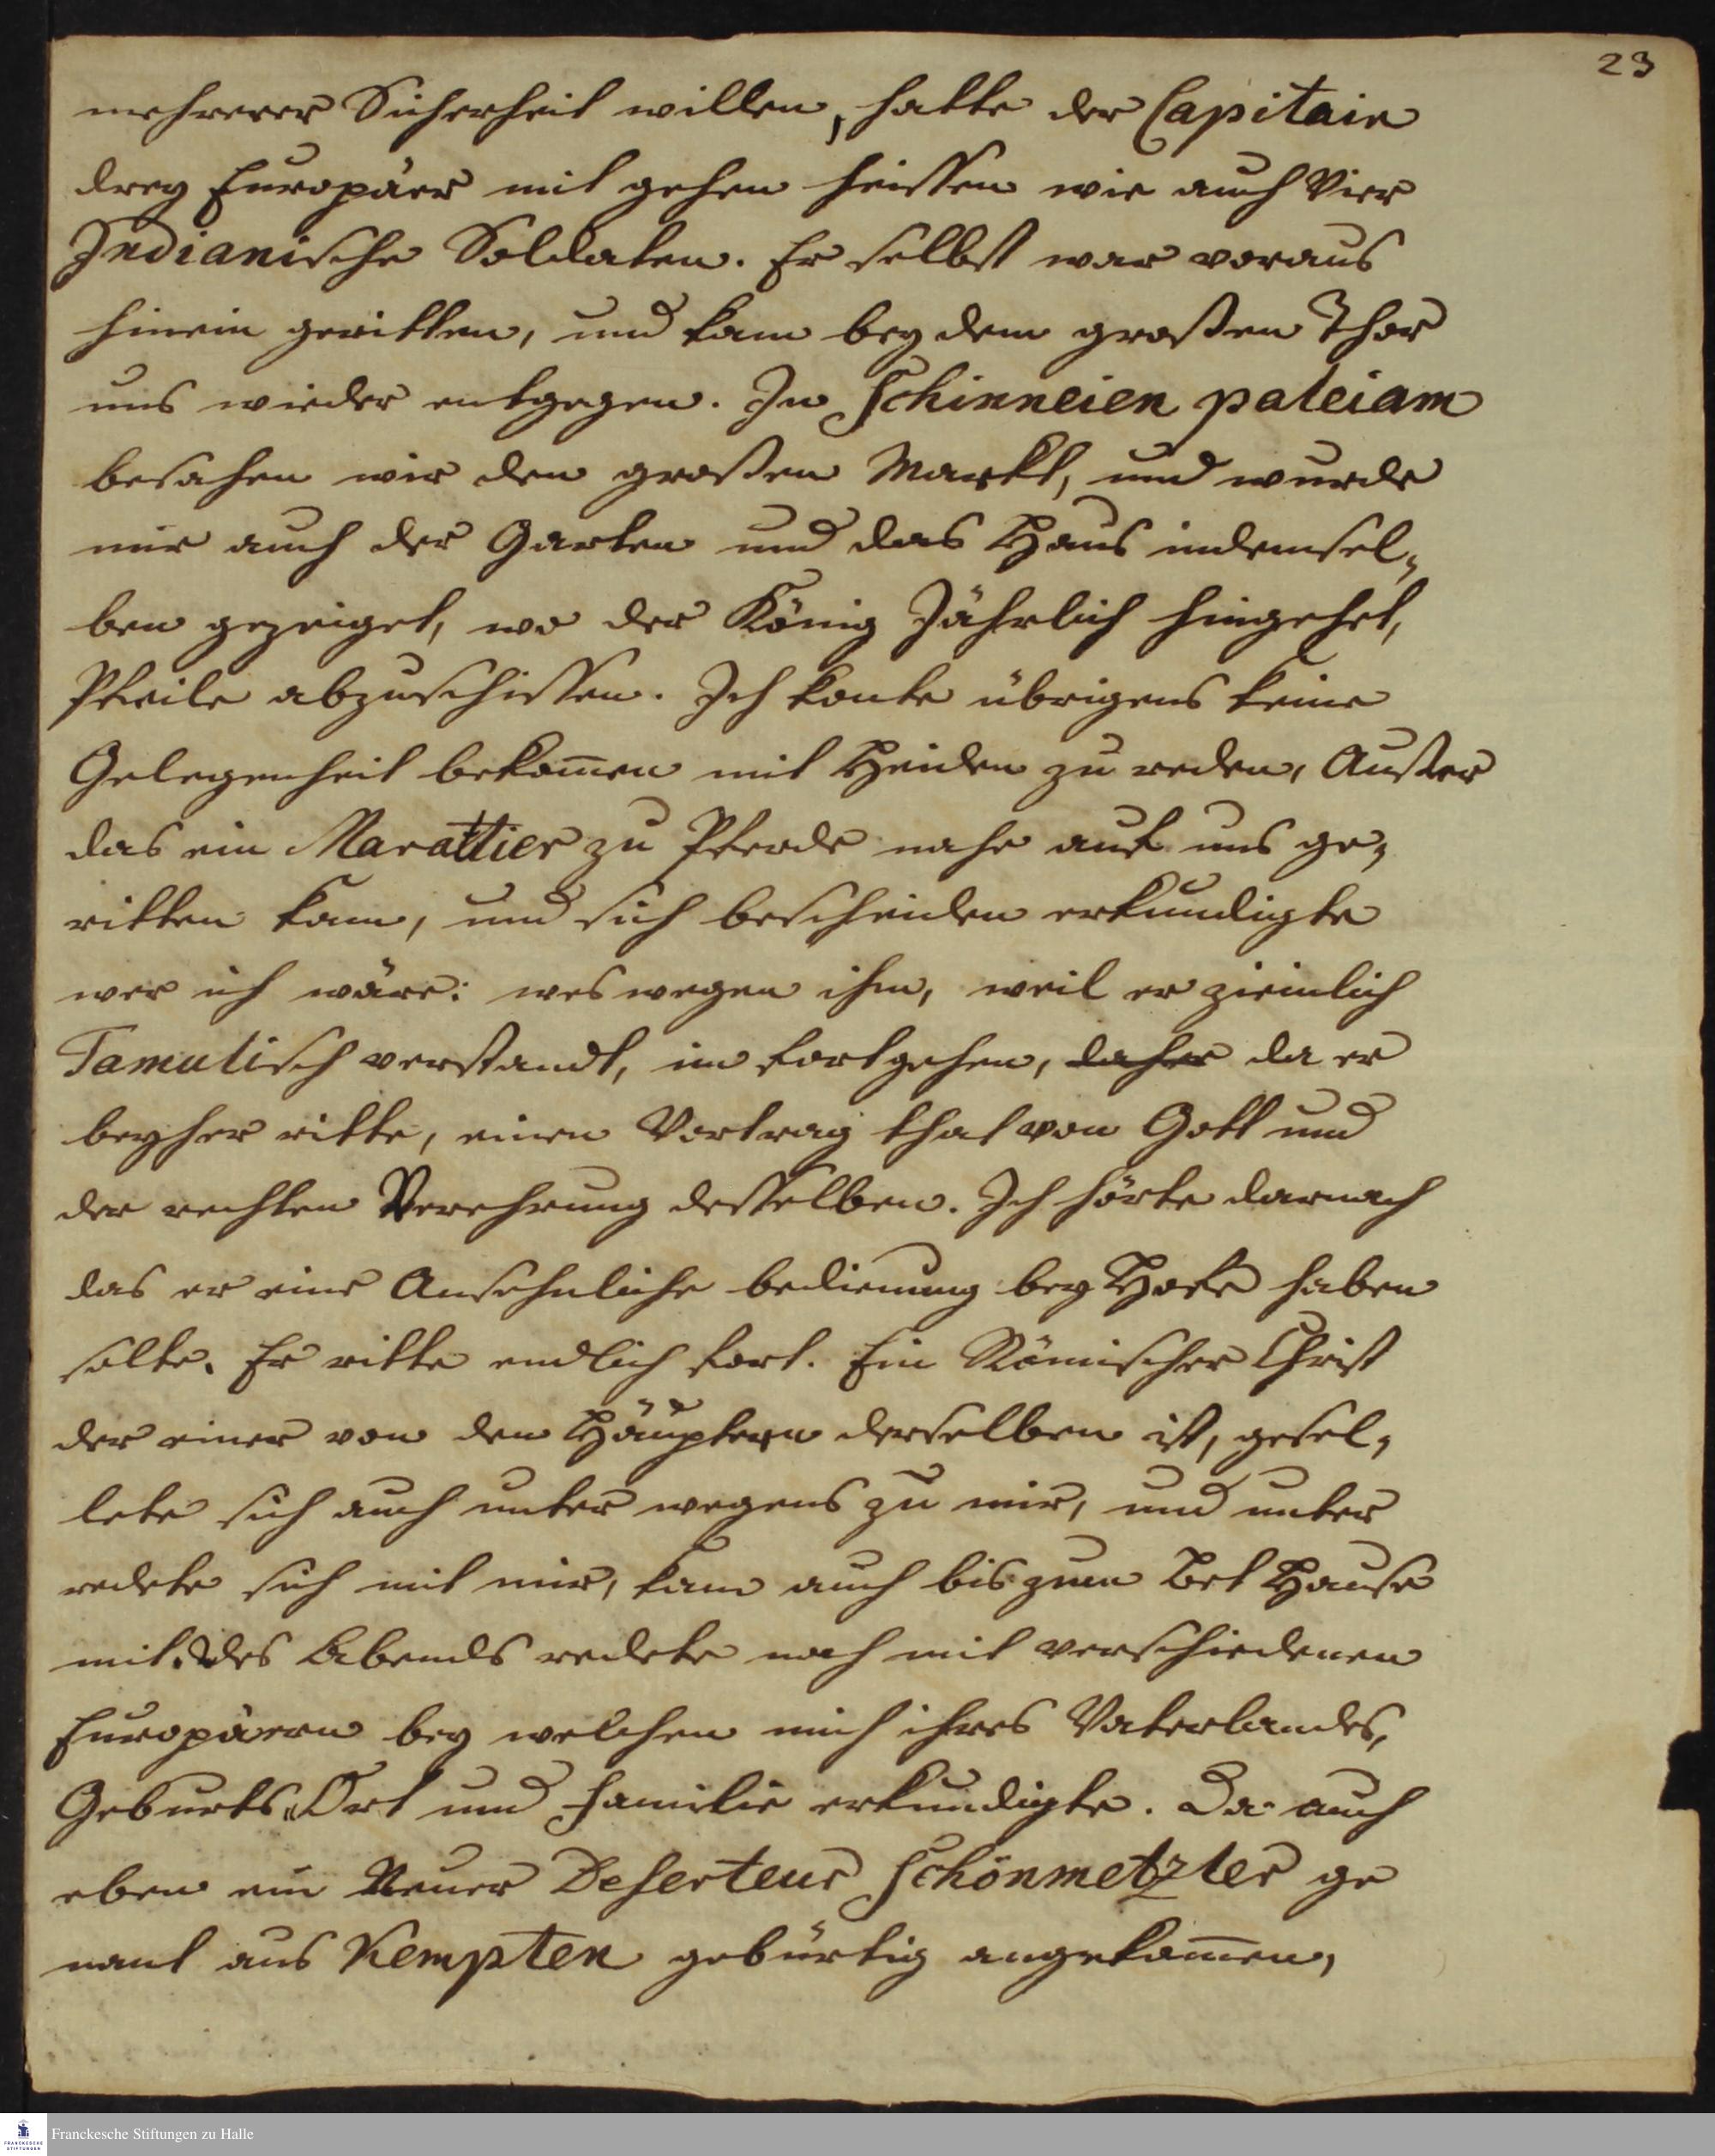 23
mehrerer Sicherheit willen, hatte der Capitain
drey Europäer mit gehen heissen wie auch Vier
Indianische Soldaten. Er selbst war voraus
hinein geritten, und kam bey dem großen Thor
uns wieder entgegen. In Schinneien paleiam
besahen wir den großen Markt, und wurde
mir auch der Garten und das Haus indemsel„
ben gezeiget, wo der König Jährlich hingehet,
Pfeile abzuschissen. Ich konte übrigens keine
Gelegenheit bekom̅en mit Heiden zu reden, Außer
das ein Marattier zu Pferde nahe auf uns ge„
ritten kam, und sich bescheiden erkundigte
wer ich wäre: wes wegen ihm, weil er ziemlich
Tamulisch verstandt, im fortgehen, daher da er
beyher ritte, einen Vortrag that von Gott und
der rechten Verehrung desselben. Ich hörte darnach
das er eine Ansehnliche bedienung bey Hofe haben
solte. Er ritte endlich fort. Ein Römischer Christ
der einer von den Häuptern derselben ist, gesel„
lete sich auch unter wegens zu mir, und unter
redete sich mit mir, kam auch bis zum Bet Hause
mit. Des Abends redete noch mit verschiedenen
Europäern bey welchen mich ihres Vaterlandes,
Geburts„Ort und Familie erkundigte. Da auch
eben ein Neuer Deserteur Schönmetzler ge
nant aus Kempten gebürtig angekom̅en,
Franckesche Stiftungen zu Halle
FRANCKESCHE
STIFTUNGEN